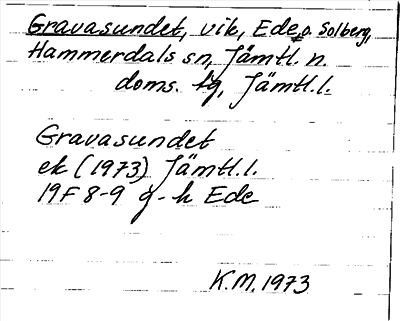 Gravasundet, vik, Ede o. Solberg,
Hammerdals sn, Jämtl. n.
doms. tg, Jämtl. l.
Gravasundet
ek (1973) Jämtl. l.
19F 8-9 g-h Ede
K.M. 1973